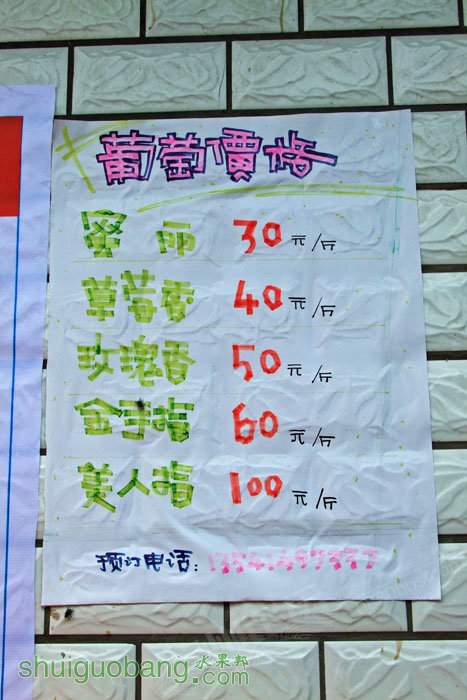 葡萄價格
蜜丽 30元/斤
草莓香 40元/斤
玫瑰香 50元/斤
金手指 60元/斤
美人指 100元/斤
预订电话:
shuiguobang.com 水果邦